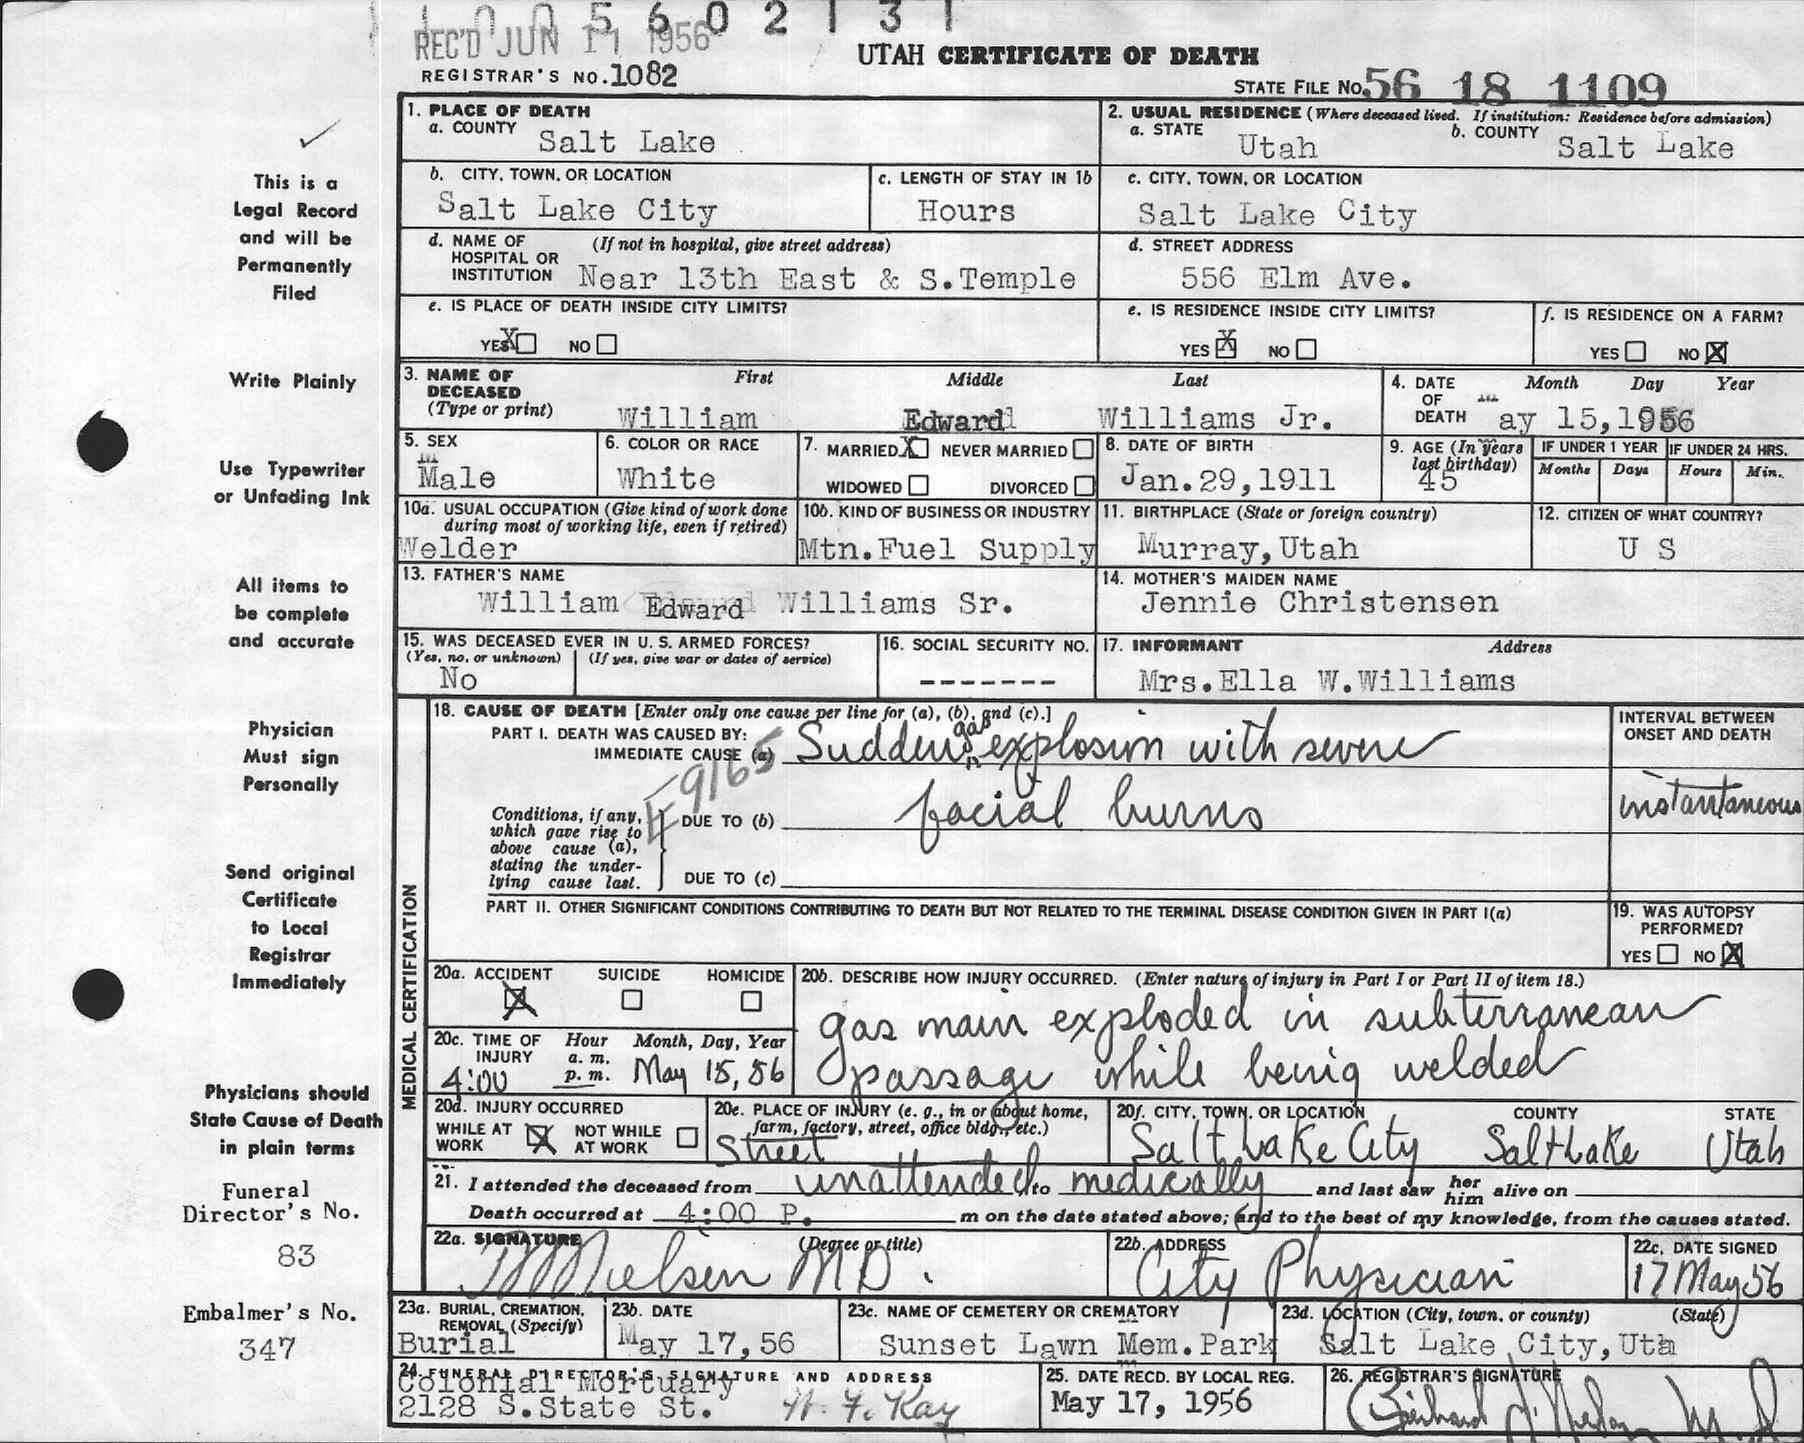 1 0 0 5 6 0 2 1 3 1
REC'D JUN 11 1956
UTAH CERTIFICATE OF DEATH
REGISTRAR'S NO. 1082
STATE FILE NO. 56 18 1109
1. PLACE OF DEATH
a. COUNTY Salt Lake
2. USUAL RESIDENCE (Where deceased lived. If institution: Residence before admission)
a. STATE Utah b. COUNTY Salt Lake
b. CITY, TOWN, OR LOCATION Salt Lake City
c. LENGTH OF STAY IN 1b Hours
c. CITY, TOWN, OR LOCATION Salt Lake City
d. NAME OF HOSPITAL OR INSTITUTION (If not in hospital, give street address) Near 13th East & S.Temple
d. STREET ADDRESS 556 Elm Ave.
e. IS PLACE OF DEATH INSIDE CITY LIMITS?
YES X NO
e. IS RESIDENCE INSIDE CITY LIMITS?
YES X NO
f. IS RESIDENCE ON A FARM?
YES NO X
3. NAME OF DECEASED (Type or print)
First Middle Last
William Edward Williams Jr.
4. DATE OF DEATH Month Day Year
May 15,1956
5. SEX Male
6. COLOR OR RACE White
7. MARRIED X NEVER MARRIED
WIDOWED DIVORCED
8. DATE OF BIRTH Jan.29,1911
9. AGE (In years last birthday) 45
IF UNDER 1 YEAR Months Days
IF UNDER 24 HRS. Hours Min.
10a. USUAL OCCUPATION (Give kind of work done during most of working life, even if retired) Welder
10b. KIND OF BUSINESS OR INDUSTRY Mtn.Fuel Supply
11. BIRTHPLACE (State or foreign country) Murray,Utah
12. CITIZEN OF WHAT COUNTRY? U S
13. FATHER'S NAME William Edward Williams Sr.
14. MOTHER'S MAIDEN NAME Jennie Christensen
15. WAS DECEASED EVER IN U. S. ARMED FORCES?
(Yes, no, or unknown) (If yes, give war or dates of service)
No
16. SOCIAL SECURITY NO. -------
17. INFORMANT Address
Mrs.Ella W.Williams
MEDICAL CERTIFICATION
18. CAUSE OF DEATH [Enter only one cause per line for (a), (b), and (c).]
PART I. DEATH WAS CAUSED BY:
IMMEDIATE CAUSE (a) Sudden gas explosion with severe
9165
Conditions, if any, which gave rise to above cause (a), stating the underlying cause last.
DUE TO (b) facial burns
DUE TO (c)
INTERVAL BETWEEN ONSET AND DEATH
instantaneous
PART II. OTHER SIGNIFICANT CONDITIONS CONTRIBUTING TO DEATH BUT NOT RELATED TO THE TERMINAL DISEASE CONDITION GIVEN IN PART I(a)
19. WAS AUTOPSY PERFORMED?
YES NO X
20a. ACCIDENT SUICIDE HOMICIDE
X
20b. DESCRIBE HOW INJURY OCCURRED. (Enter nature of injury in Part I or Part II of item 18.)
gas main exploded in subterranean
passage while being welded
20c. TIME OF INJURY Hour a. m. p. m. Month, Day, Year
4:00 May 15, 56
20d. INJURY OCCURRED
WHILE AT WORK X NOT WHILE AT WORK
20e. PLACE OF INJURY (e. g., in or about home, farm, factory, street, office bldg., etc.)
Street
20f. CITY, TOWN, OR LOCATION COUNTY STATE
Salt Lake City Salt Lake Utah
21. I attended the deceased from unattended to medically and last saw her him alive on
Death occurred at 4:00 P. m on the date stated above; and to the best of my knowledge, from the causes stated.
22a. SIGNATURE (Degree or title)
Nielsen MD.
22b. ADDRESS
City Physician
22c. DATE SIGNED
17 May 56
23a. BURIAL, CREMATION, REMOVAL (Specify) Burial
23b. DATE May 17,56
23c. NAME OF CEMETERY OR CREMATORY Sunset Lawn Mem.Park
23d. LOCATION (City, town, or county) (State)
Salt Lake City,Uta
24. FUNERAL DIRECTOR'S SIGNATURE AND ADDRESS
Colonial Mortuary
2128 S.State St. W. F. Kay
25. DATE RECD. BY LOCAL REG.
May 17, 1956
26. REGISTRAR'S SIGNATURE
This is a
Legal Record
and will be
Permanently
Filed
Write Plainly
Use Typewriter
or Unfading Ink
All items to
be complete
and accurate
Physician
Must sign
Personally
Send original
Certificate
to Local
Registrar
Immediately
Physicians should
State Cause of Death
in plain terms
Funeral
Director's No.
83
Embalmer's No.
347